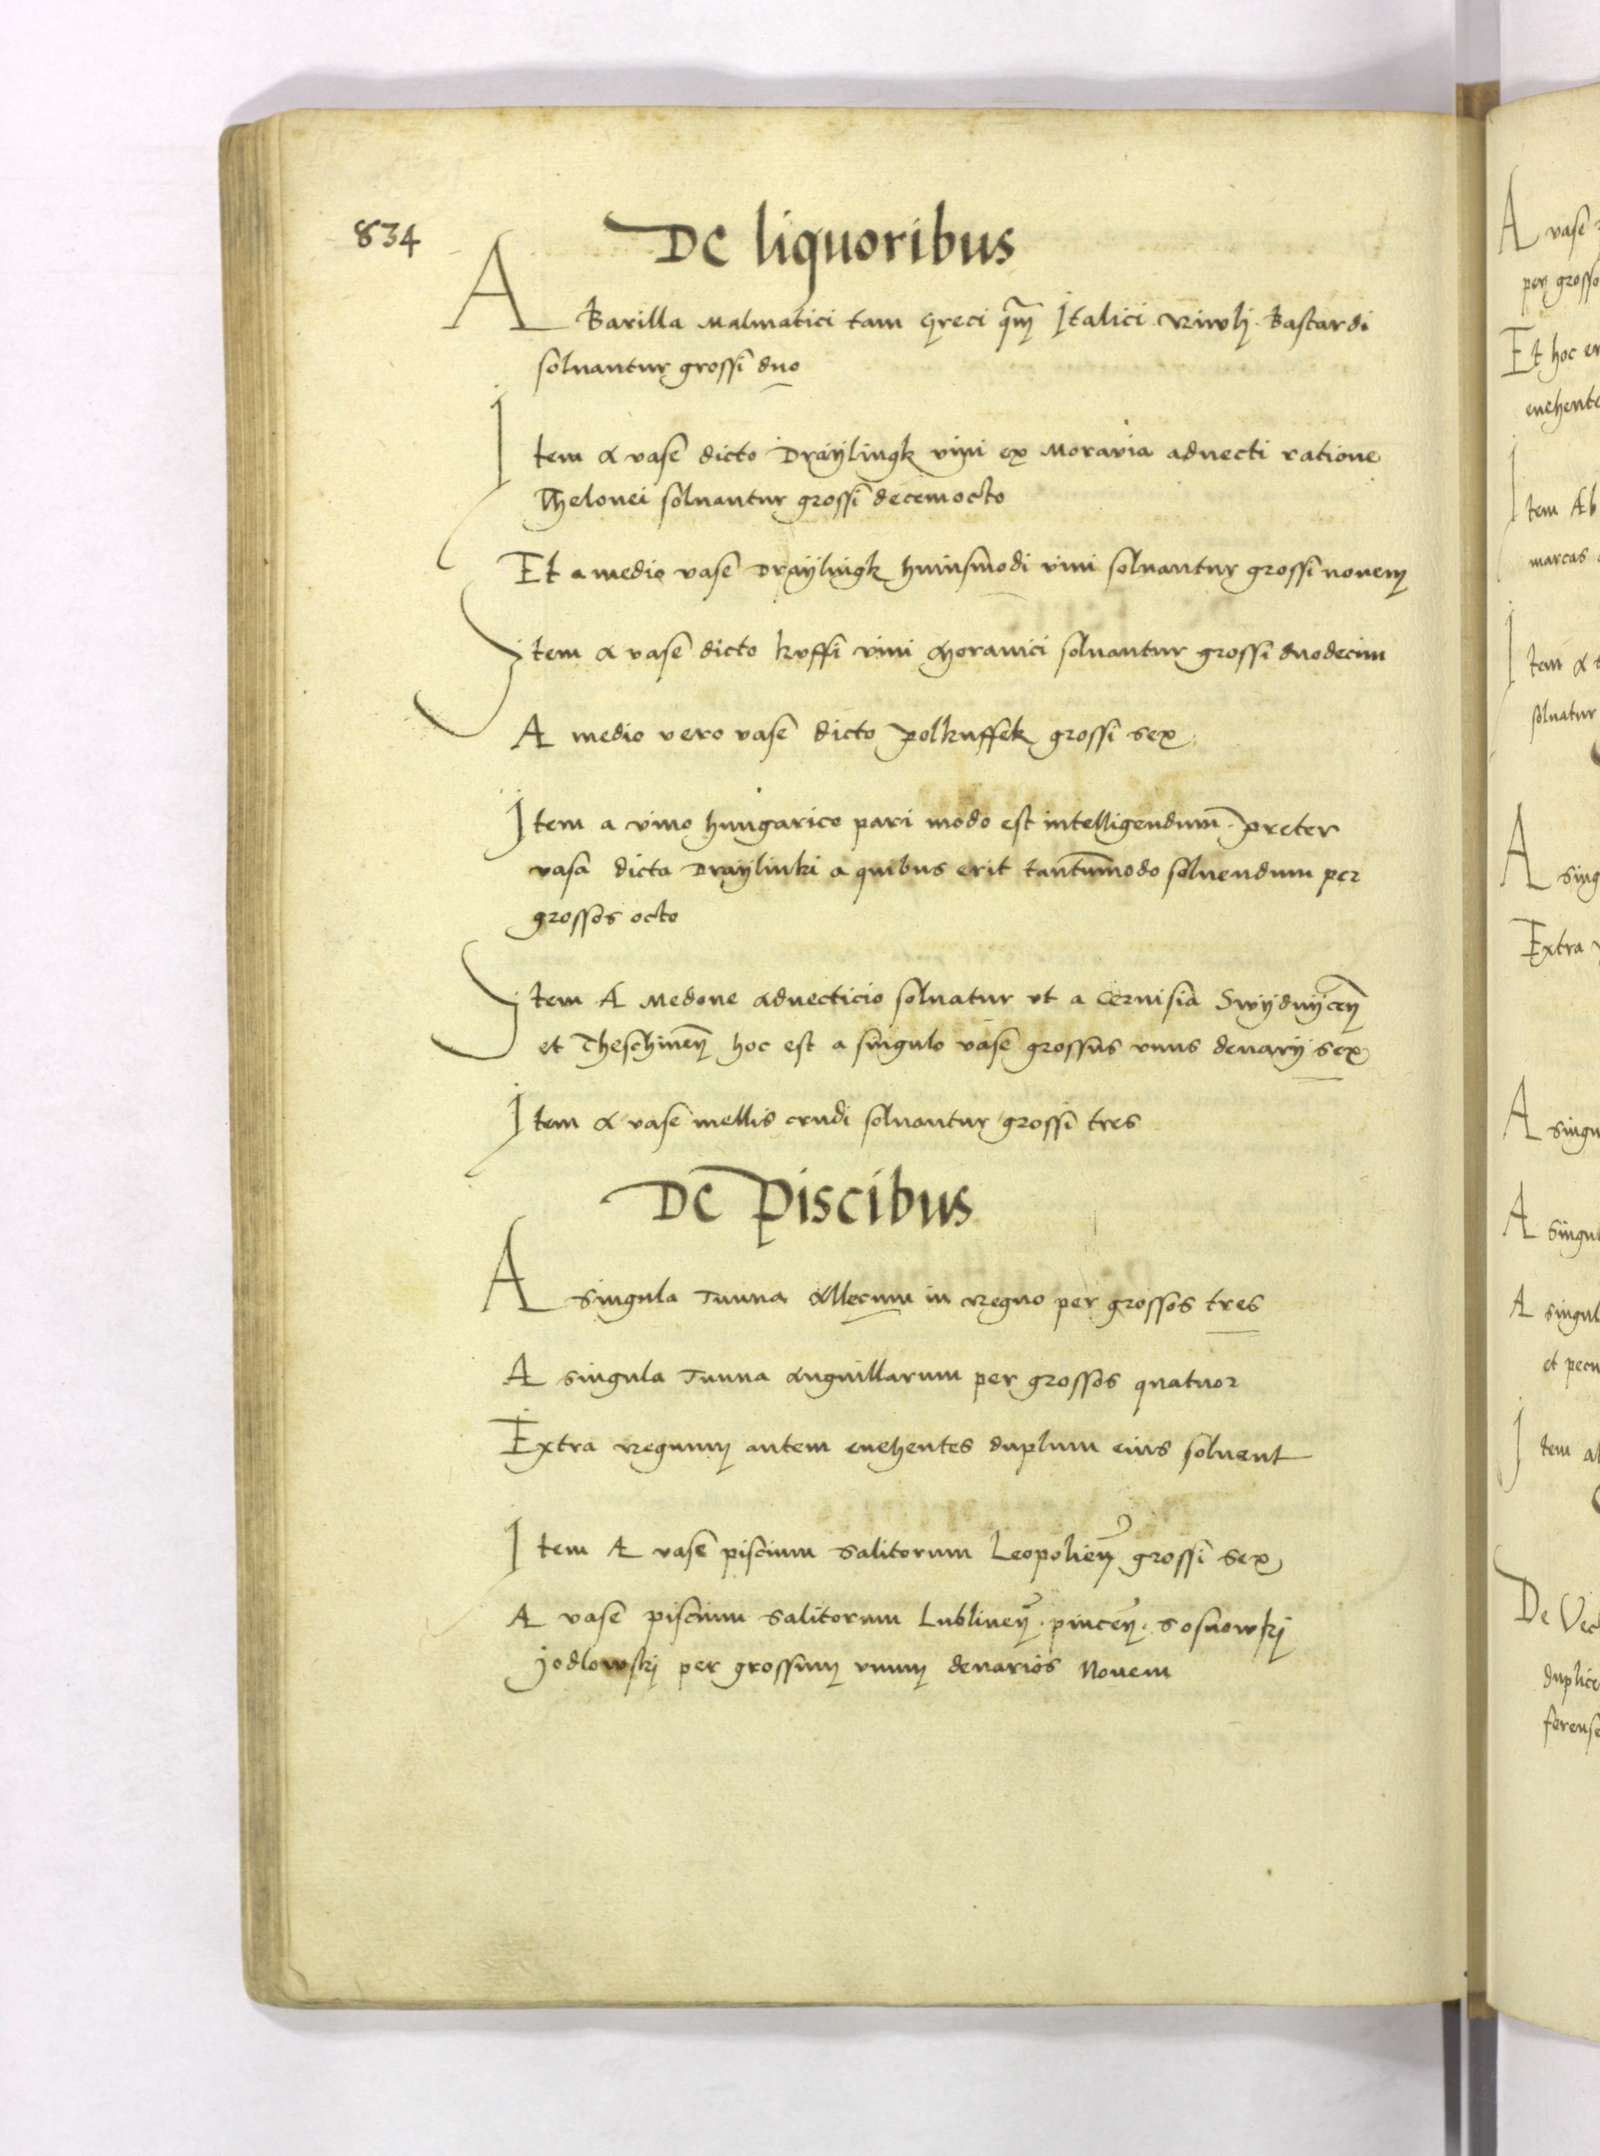 834
De liquoribus
A Barilla Malmatici tam Greci qm Italici Riwlj Bastardi
soluantur grossi duo
Item a vase dicto Draylingk vini ex Moravia aduecti ratione
Thelonei soluantur grossi decemocto
Et a medio vase Draylingk huiusmodi vini soluantur grossi nouem
Item a vase dicto kuffi vini Morauici soluantur grossi duodecim
A medio vero vase dicto polkuffek grossi sex
Item a vino hungarico pari modo est intelligendum. preter
vasa dicta Draylinki a quibus erit tantummodo soluendum per
grossos octo
Item A Medone aduecticio soluatur vt a Ceruisia Swydnycen
et Theschinen hoc est a singulo vase grossus vnus denarij sex
Item a vase mellis crudi soluantur grossi tres
De Piscibus
A singula Tunna Allecum in Regno per grossos tres
A singula Tunna anguillarum per grossos quatuor
Extra Regnum autem euehentes duplum eius soluent
Item A vase piscium salitorum Leopolien grossi sex
A vase piscium salitorum Lublinen. pincen. Sosnowskj
Jodlowskj per grossum vnum denarios Nouem
A vase
per grosso
Et hoc
euehente
Item Ab
marcas
Item a
soluatur
A sing
Extra
A singu
A singu
A singul
et pecu
Item
De Vec
duplice
forense